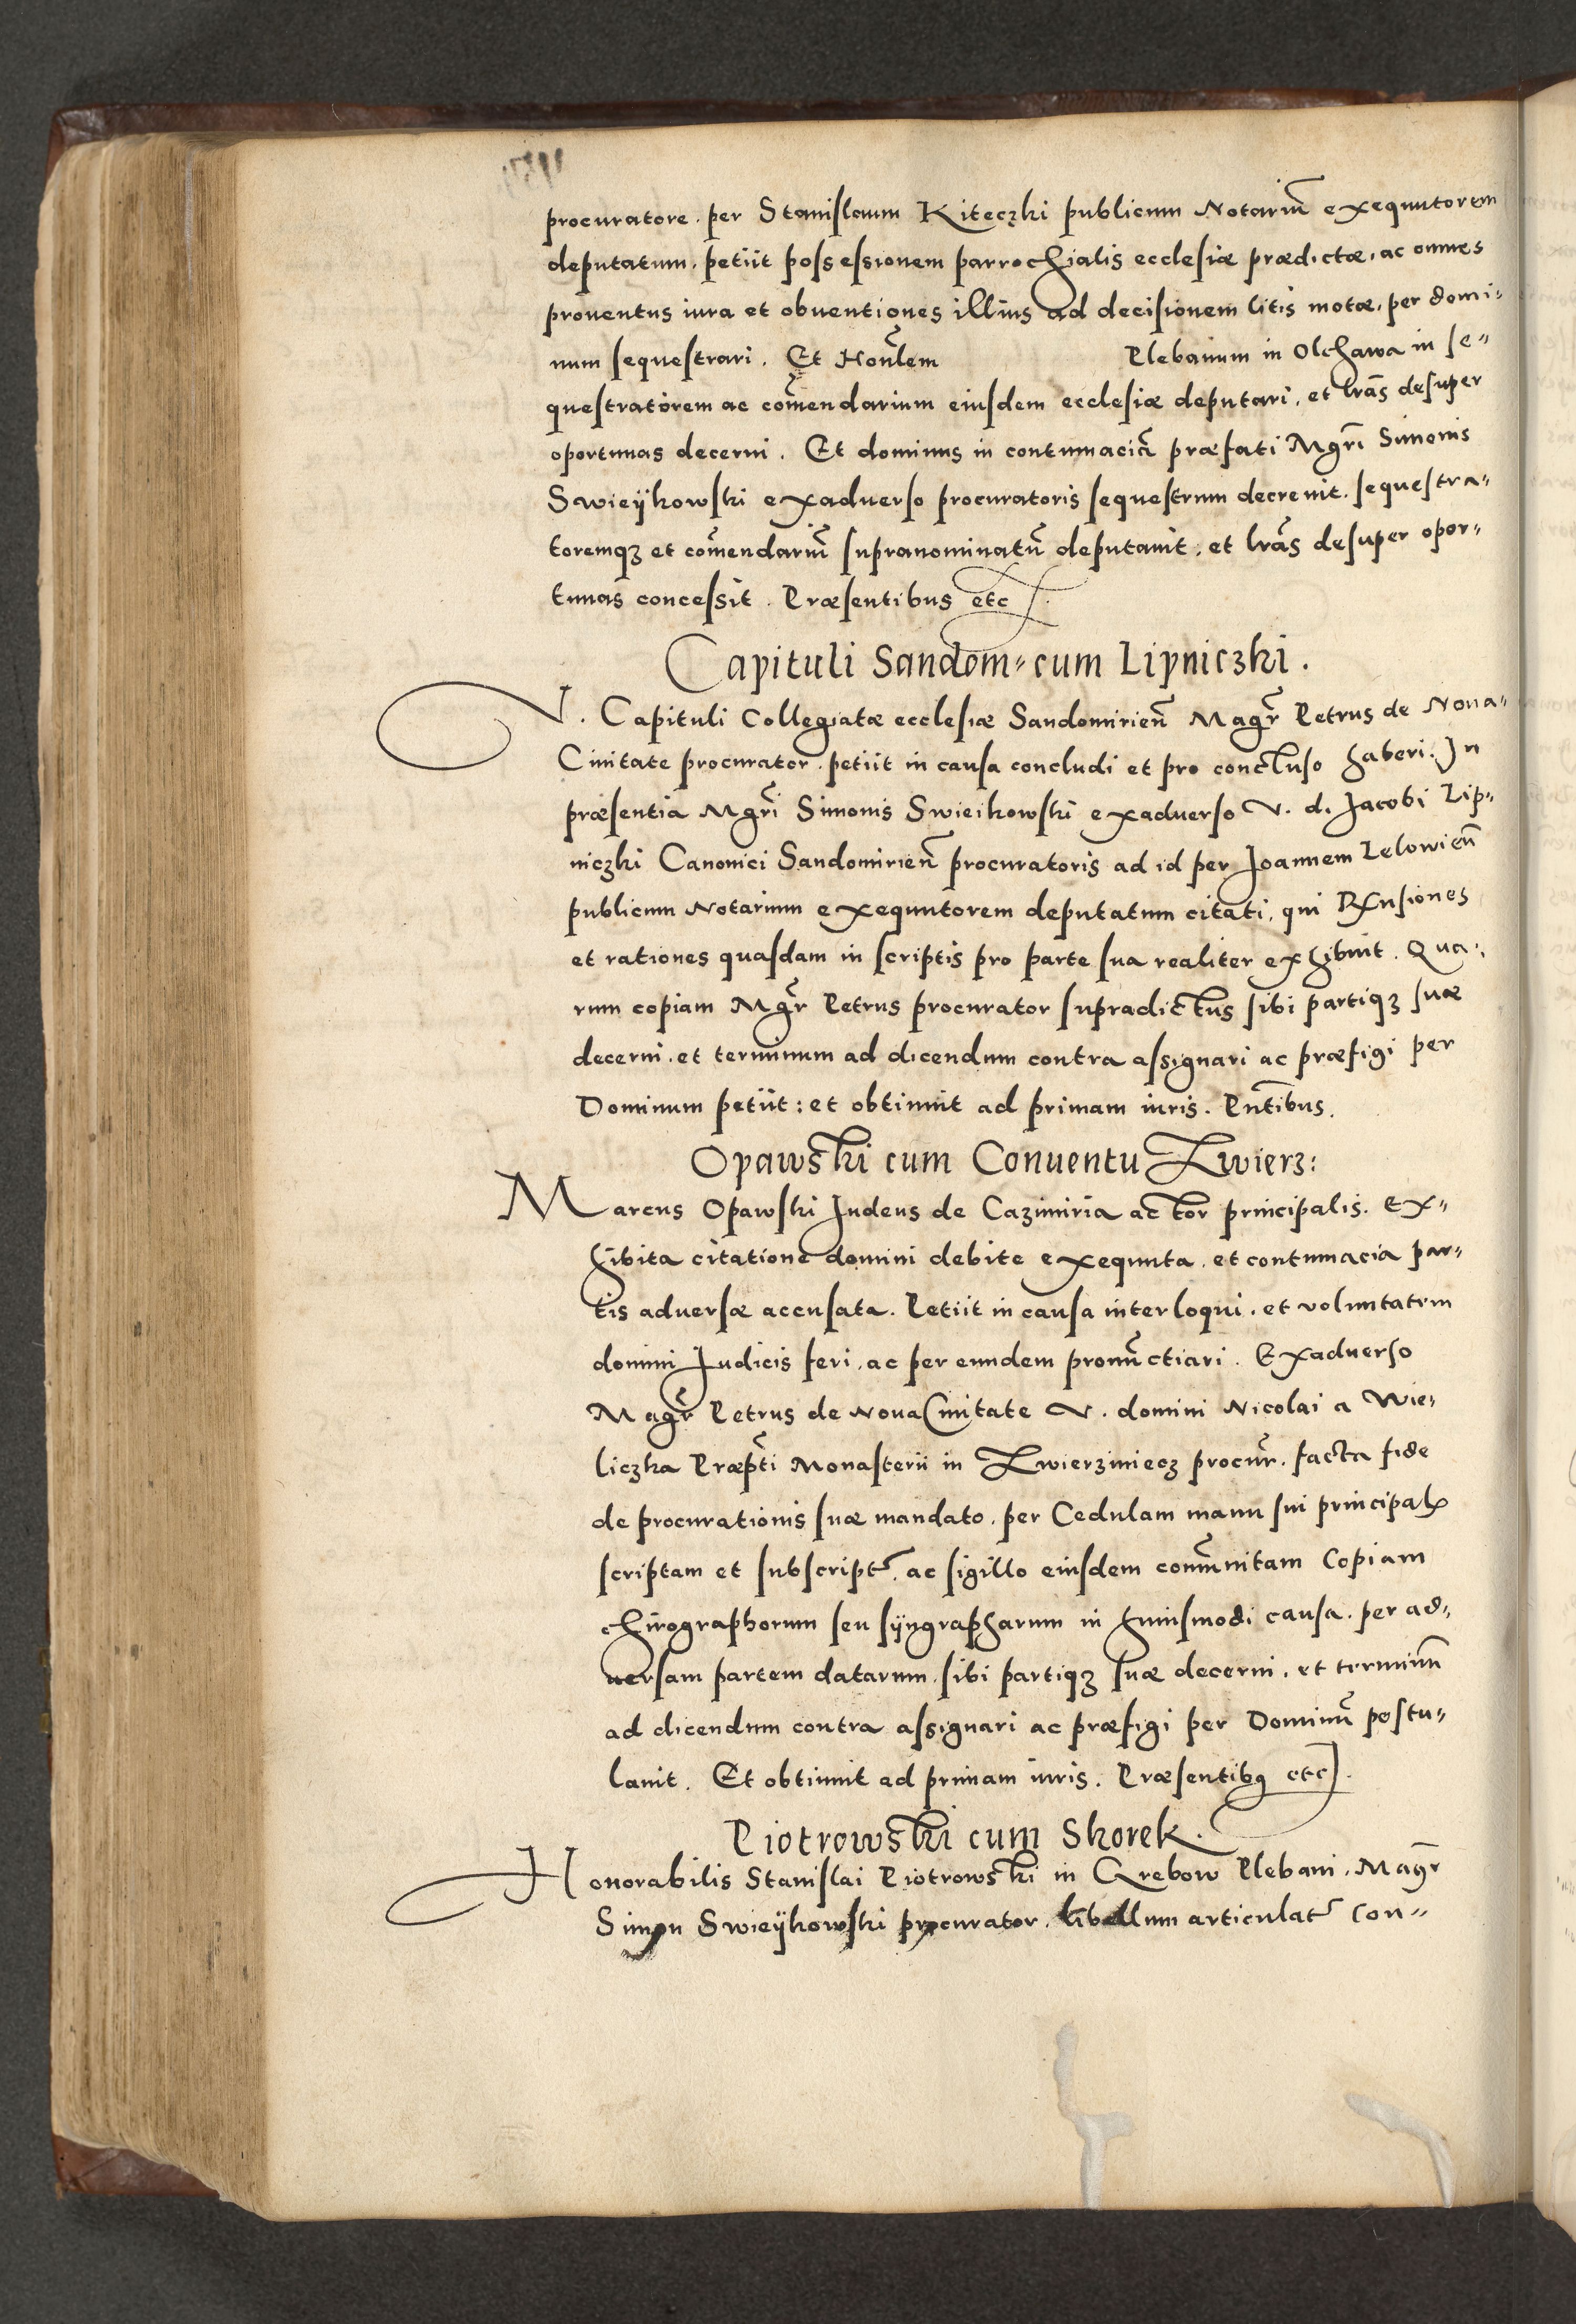 procuratore. per Stanislaum Kiteczki publicum Notariũ exequutorem
deputatum. petiit possessionem parrochialis ecclesiæ prædictæ. ac omnes
prouentus iura et obuentiones illius ad decisionem litis motæ. per domi-
num sequestrari. Et Honlem Plebanum in Olchawa in se-
questratorem ac comendarium eiusdem ecclesiæ deputari. et lras desuper
oportunas decerni. Et dominus in contumaciã præfati Mgri Simonis
Swieÿkowski exaduerso procuratoris sequestrum decreuit. sequestra-
toremqꝫ et comendariũ supranominatũ deputauit. et lras desuper opor-
tunas concessit. Præsentibus etc.
Capituli Sandom- cum Lipniczki.
V. Capituli Collegiatæ ecclesiæ Sandomirieñ Magr Petrus de Noua-
Ciuitate procurator. petiit in causa concludi et pro concluso haberi. In
præsentia Mgri Simonis Swieikowski exaduerso V. d. Jacobi Lip-
niczki Canonici Sandomirieñ procuratoris ad id per Joannem Lelowieñ
publicum Notarium exequutorem deputatum citati. qui
et rationes quasdam in scriptis pro parte sua realiter exhibuit. Qua-
rum copiam Mgr Petrus procurator supradictus sibi partiqꝫ suæ
decerni. et terminum ad dicendum contra assignari ac præfigi per
Dominum petiit: et obtinuit ad primam iuris. Pntibus.
Opawski cum Conuentu Zwierz:
Marcus Opawski Judeus de Cazimiria actor principalis. Ex-
hibita citatione domini debite exequuta. et contumacia par-
tis aduersæ accusata. Petiit in causa interloqui. et voluntatem
domini Judicis feri. ac per eundem pronũctiari. Exaduerso
Magr Petrus de Noua Ciuitate V. domini Nicolai a Wie-
liczka Præpti Monasterii in Zwierziniecz procur. facta fide
de procurationis suæ mandato. per Cedulam manu sui principal
scriptam et subscript. ac sigillo eiusdem comunitam Copiam
chirographorum seu sÿngrapharum in huiusmodi causa. per ad-
uersam partem datarum. sibi partiqꝫ suæ decerni. et terminũ
ad dicendum contra assignari ac præfigi per Dominũ postu-
lauit. Et obtinuit ad primam iuris. Præsentibꝰ etc.
Piotrowski cum Skorek.
Honorabilis Stanislai Piotrowski in Grebow Plebani. Magr
Simon Swieÿkowski procurator. libellum articulat con-